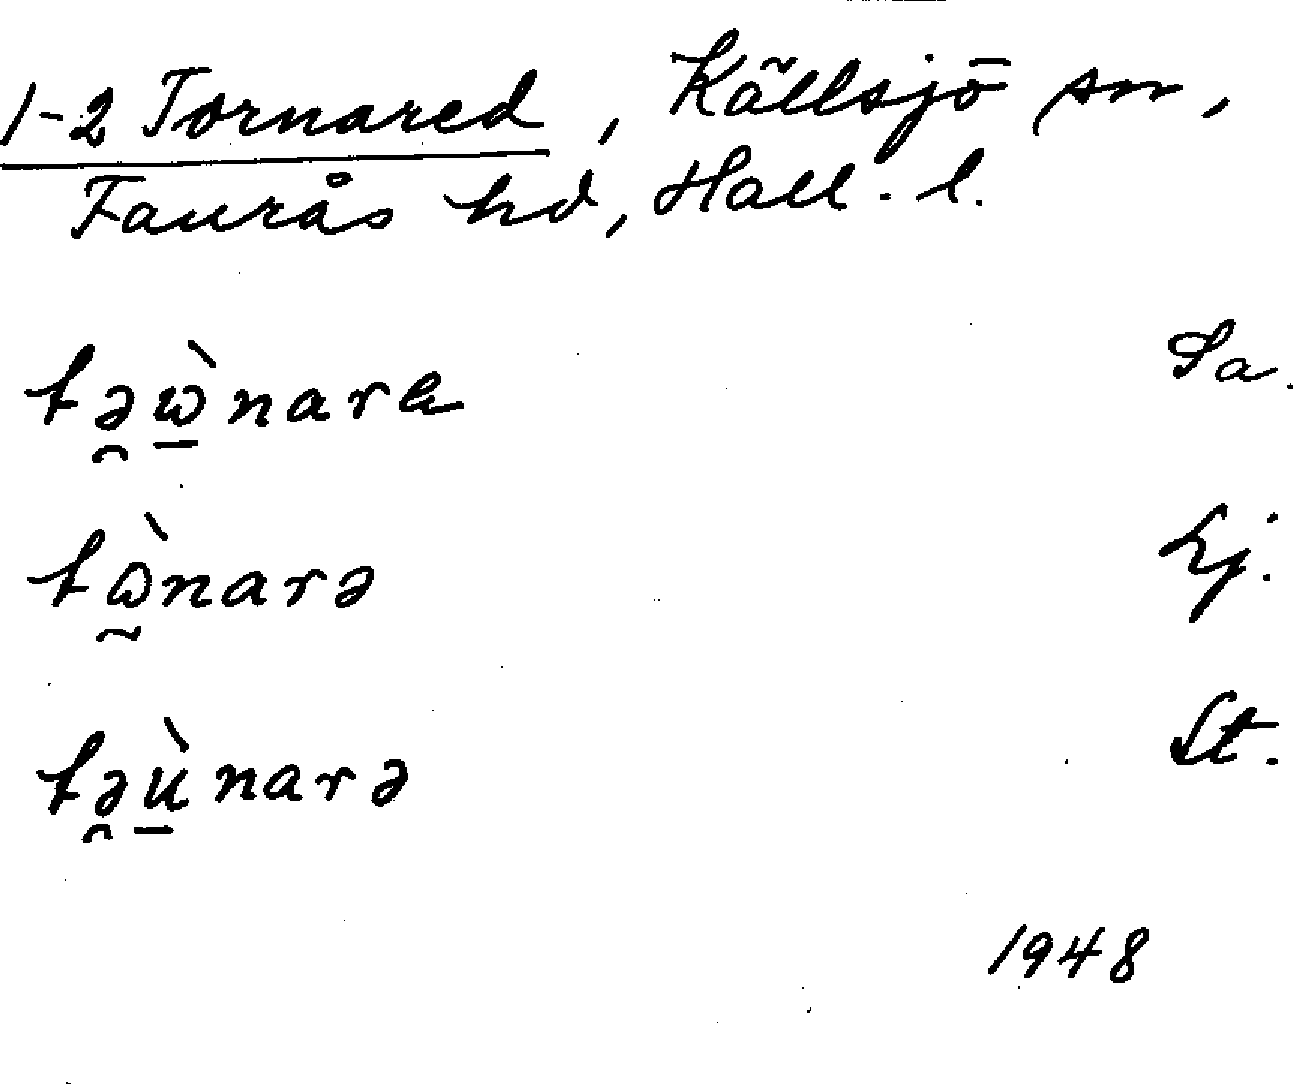 1-2 Tornared, Källsjö sn,
Faurås hd, Hall. l.
tə̯ὼ̱nara Sa.
tὼ̰narə Lj.
tə̯ṉ̀narə St.
1948